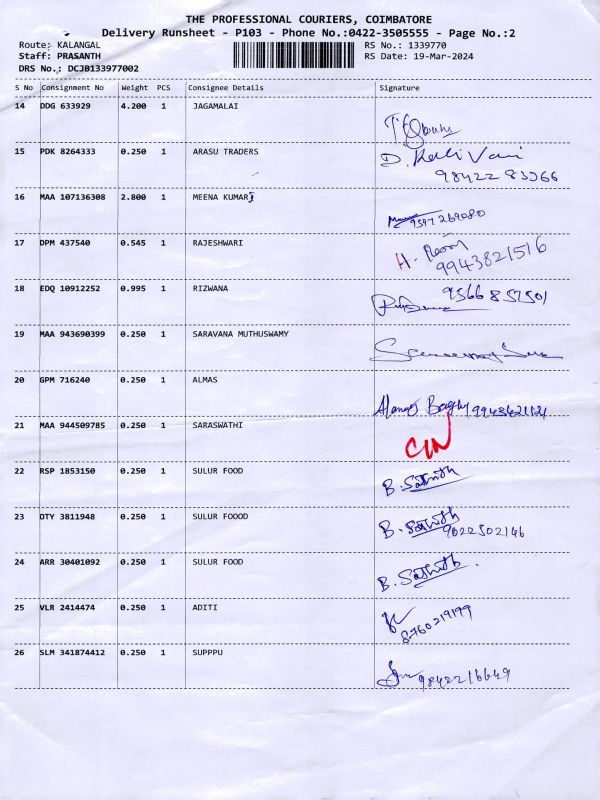 THE PROFESSIONAL COURIERS, COIMBATORE
Delivery Runsheet - P103 - Phone No.:0422-3505555 - Page No.:2
Route: KALANGAL RS No.: 1339770
Staff: PRASANTH RS Date: 19-Mar-2024
DRS No.: DCJB133977002
S No Consignment No Weight PCS Consignee Details Signature
14 DDG 633929 4.200 1 JAGAMALAI
15 PDK 8264333 0.250 1 ARASU TRADERS D. Kalivani
98422 83366
16 MAA 107136308 2.800 1 MEENA KUMARI 9597269080
17 DPM 437540 0.545 1 RAJESHWARI H.
9943821516
18 EDQ 10912252 0.995 1 RIZWANA 9566857501
19 MAA 943690399 0.250 1 SARAVANA MUTHUSWAMY
20 GPM 716240 0.250 1 ALMAS
21 MAA 944509785 0.250 1 SARASWATHI
22 RSP 1853150 0.250 1 SULUR FOOD B. Sathish
23 DTY 3811948 0.250 1 SULUR FOOOD B. Sathish
9022502146
24 ARR 30401092 0.250 1 SULUR FOOD B. Sathish
25 VLR 2414474 0.250 1 ADITI
8760219199
26 SLM 341874412 0.250 1 SUPPPU 9842216649